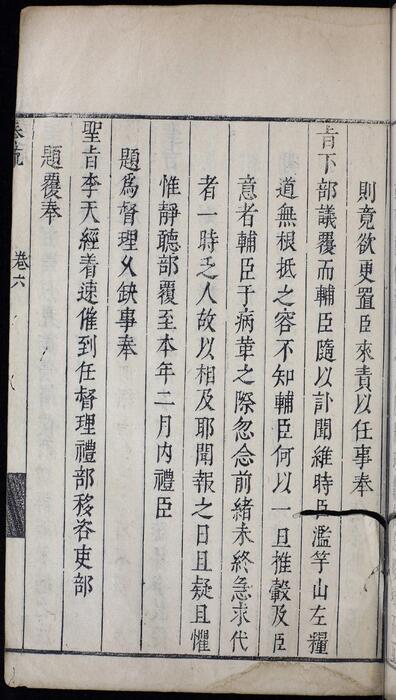 則竟欲更置臣來責以任事奉
旨下部議覆而輔臣隨以訃聞維時臣濫竽山左糧
道無根抵之容不知輔臣何以一旦推轂及臣
意者輔臣于病革之際忽念前緒未終急求代
者一時乏人故以相及耶聞報之日且疑且懼
惟靜聽部覆至本年二月內禮臣
題爲督理乆缺事奉
聖旨李天經着速催到任督理禮部移咨吏部
題覆奉
奏疏
卷六